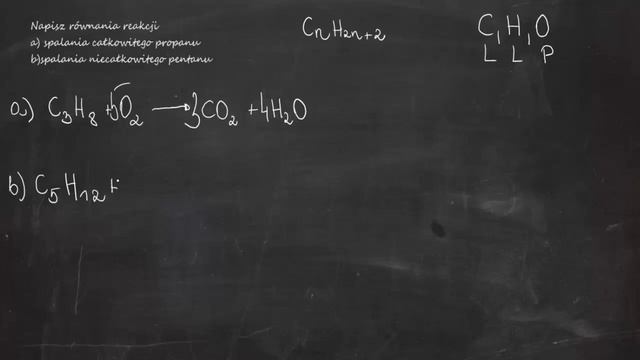 Napisz równania reakcji
a) spalania całkowitego propanu
b) spalania niecałkowitego pentanu
CnH2n+2
C, H, O
L L P
a) C3H8 + 5O2 → 3CO2 + 4H2O
b) C5H12 +